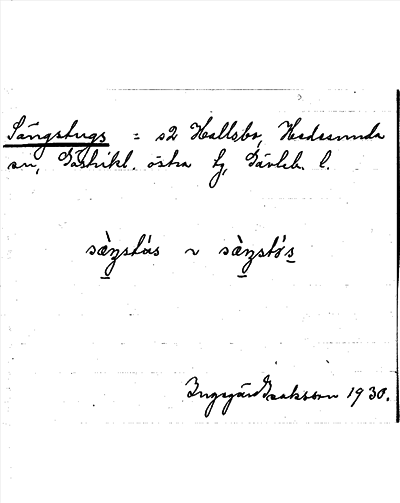 Sängstugs = s2 Hallsbo, Hedesunda
sn, Gästrikl. östra tg, Gävleb. l.
sæ̀ŋstús ~ sæ̀ŋstø's
Ingegärd Isaksson 1930.